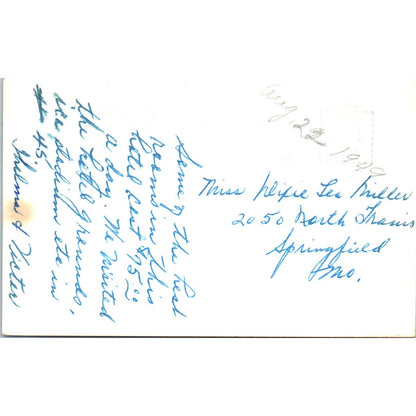 Aug 22 1949
Some of the best
rooms in this
hotel cost $45.00
a day. We visited
the hotel grounds,
ice stadium etc in
45'
Thelma & Victor
Miss Dixie Lea Miller
2050 North Travis
Springfield
Mo.